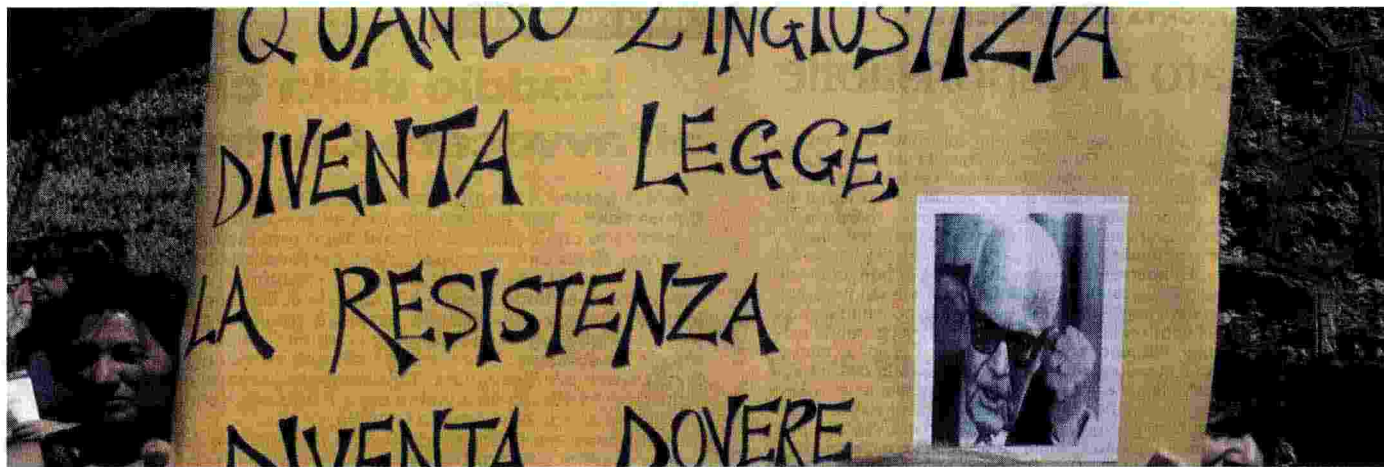 QUANDO L'INGIUSTIZIA
DIVENTA LEGGE,
LA RESISTENZA
DIVENTA DOVERE